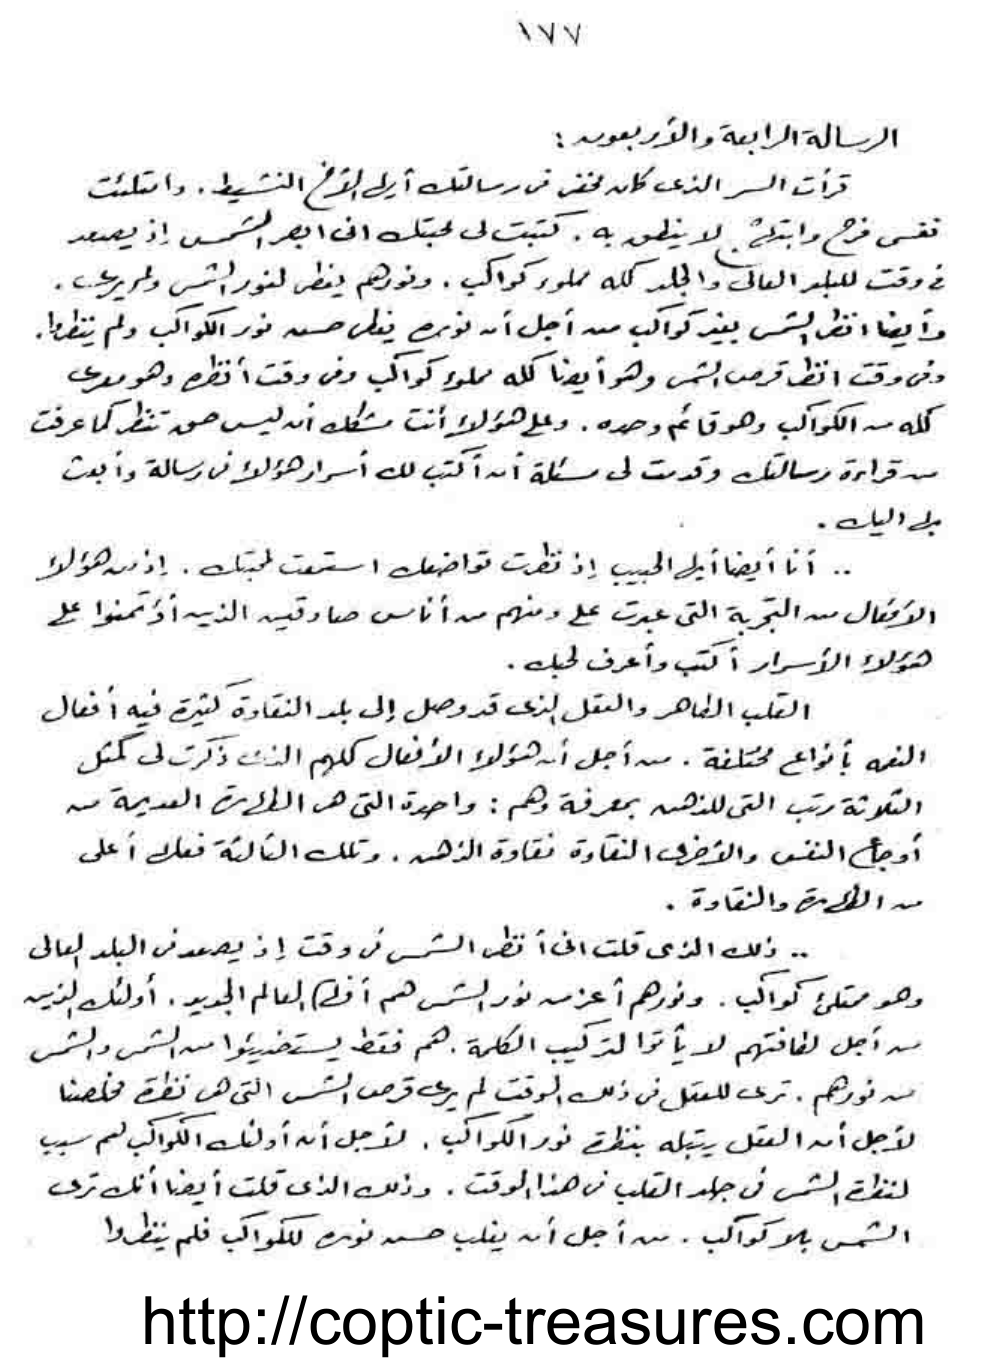 ١٧٧
الرسالة الرابعة والأربعون :
قرأت السر الذى كان مخفى فى رسالتك أيها الأخ النشيط . وامتلئت
نفسى فرح وابتهاج لا ينطق به . كتبت لى محبتك انى ابصر الشمس إذ يصعد
فى وقت للبلد العالى والجلد كله مملوء كواكب . ونورهم يغطى لنور الشمس ولم يرعب .
وأيضا انظر الشمس بغير كواكب من أجل أن نوره يغطى حسن نور الكواكب ولم ينظروا .
وفى وقت انظر قرص الشمس وهو أيضا كله مملوء كواكب وفى وقت أنظره وهو معرى
كله من الكواكب وهو قائم وحده . وعلى هؤلاء أنت متشكك أن ليس حق تنظر كما عرفت
من قراءة رسالتك وقدمت لى مسئلة أن أكتب لك أسرار هؤلاء فى رسالة وأبعث
بها اليك .
.. أنا أيضا أيها الحبيب إذ نظرت تواضعك استمعت لمحبتك . إذ من هؤلاء
الأفعال من التجربة التى عبرت على ومنهم من أناس صادقين الذين أؤتمنوا على
هؤلاء الأسرار أكتب وأعرف لحبك .
القلب الطاهر والعقل الذى قد وصل إلى بلد النقاوة كثيرة فيه أفعال
النعمه بأنواع مختلفة . من أجل أن هؤلاء الأفعال كلهم الذى ذكرت لى كمثل
الثلاثة رتب التى للذهن بمعرفة وهم : واحدة التى هى الطهارة العديمة من
أوجاع النفس والأخرى النقاوة نقاوة الذهن . وتلك الثالثة فعلها أعلى
من الطهارة والنقاوة .
.. ذلك الذى قلت انى أنظر الشمس فى وقت إذ يصعد فى البلد العالى
وهو ممتلئ كواكب . ونورهم أعز من نور الشمس هم أفعال العالم الجديد . أولئك الذين
من أجل لطافتهم لا يأتوا لتركيب الكلمة . هم فقط يستضيئوا من الشمس والشمس
من نورهم . ترى للعقل فى ذلك الوقت لم يرى قرص الشمس التى هى نظرة مخلصنا
لأجل أن العقل يبتله بنظرة نور الكواكب . لأجل أن أولئك الكواكب لهم سبب
لنظرة الشمس فى جلد القلب فى هذا الوقت . وذلك الذى قلت أيضا أنك ترى
الشمس بلا كواكب . من أجل أن يغلب حسن نوره للكواكب فلم ينظروا
http://coptic-treasures.com